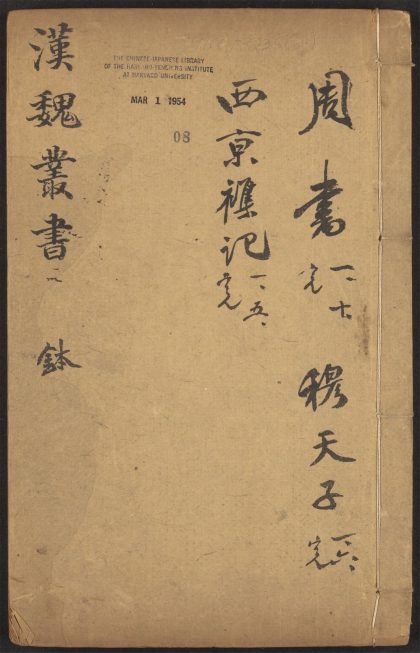 周書 一、十 完 穆天子 一、六、完
西京襍記 一、五、完
THE CHINESE-JAPANESE LIBRARY
OF THE HARVARD-YENCHING INSTITUTE
AT HARVARD UNIVERSITY
MAR 1 1954
08
漢魏叢書 鉢